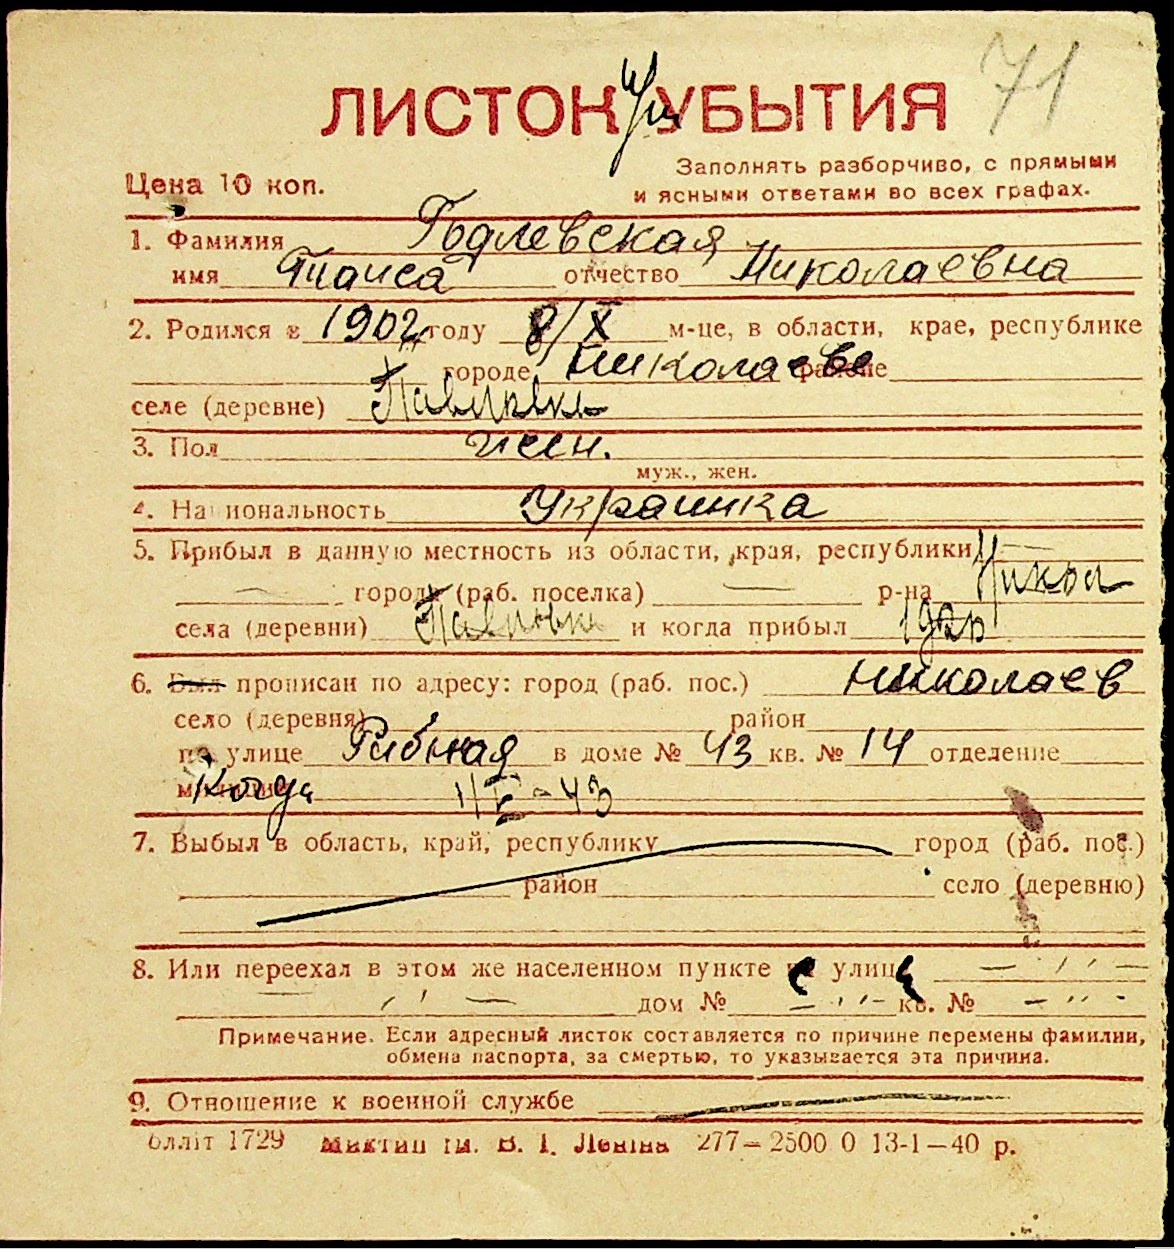 71
ЛИСТОК УБЫТИЯ
Заполнять разборчиво, с прямыми
Цена 10 коп. и ясными ответами во всех графах.
1. Фамилия Годлевская
имя Таиса отчество Николаевна
2. Родился в 1902 году 8/X м-це, в области, крае, республике
городе Николаеве районе
селе (деревне)
3. Пол жен.
муж., жен.
4. Национальность Украинка
5. Прибыл в данную местность из области, края, республики
города (раб. поселка) р-на
села (деревни) и когда прибыл
6. Был прописан по адресу: город (раб. пос.) Николаев
село (деревня) район
по улице Рибная в доме № 43 кв. № 14 отделение
милиции Когда
7. Выбыл в область, край, республику город (раб. пос.)
район село (деревню)
8. Или переехал в этом же населенном пункте с улица — ,, —
— ,, — дом № — ,, — кв. № — ,, —
Примечание. Если адресный листок составляется по причине перемены фамилии,
обмена паспорта, за смертью, то указывается эта причина.
9. Отношение к военной службе
Блліт 1729 Миктип ім. В. І. Леніна 277—2500 0 13-1—40 р.